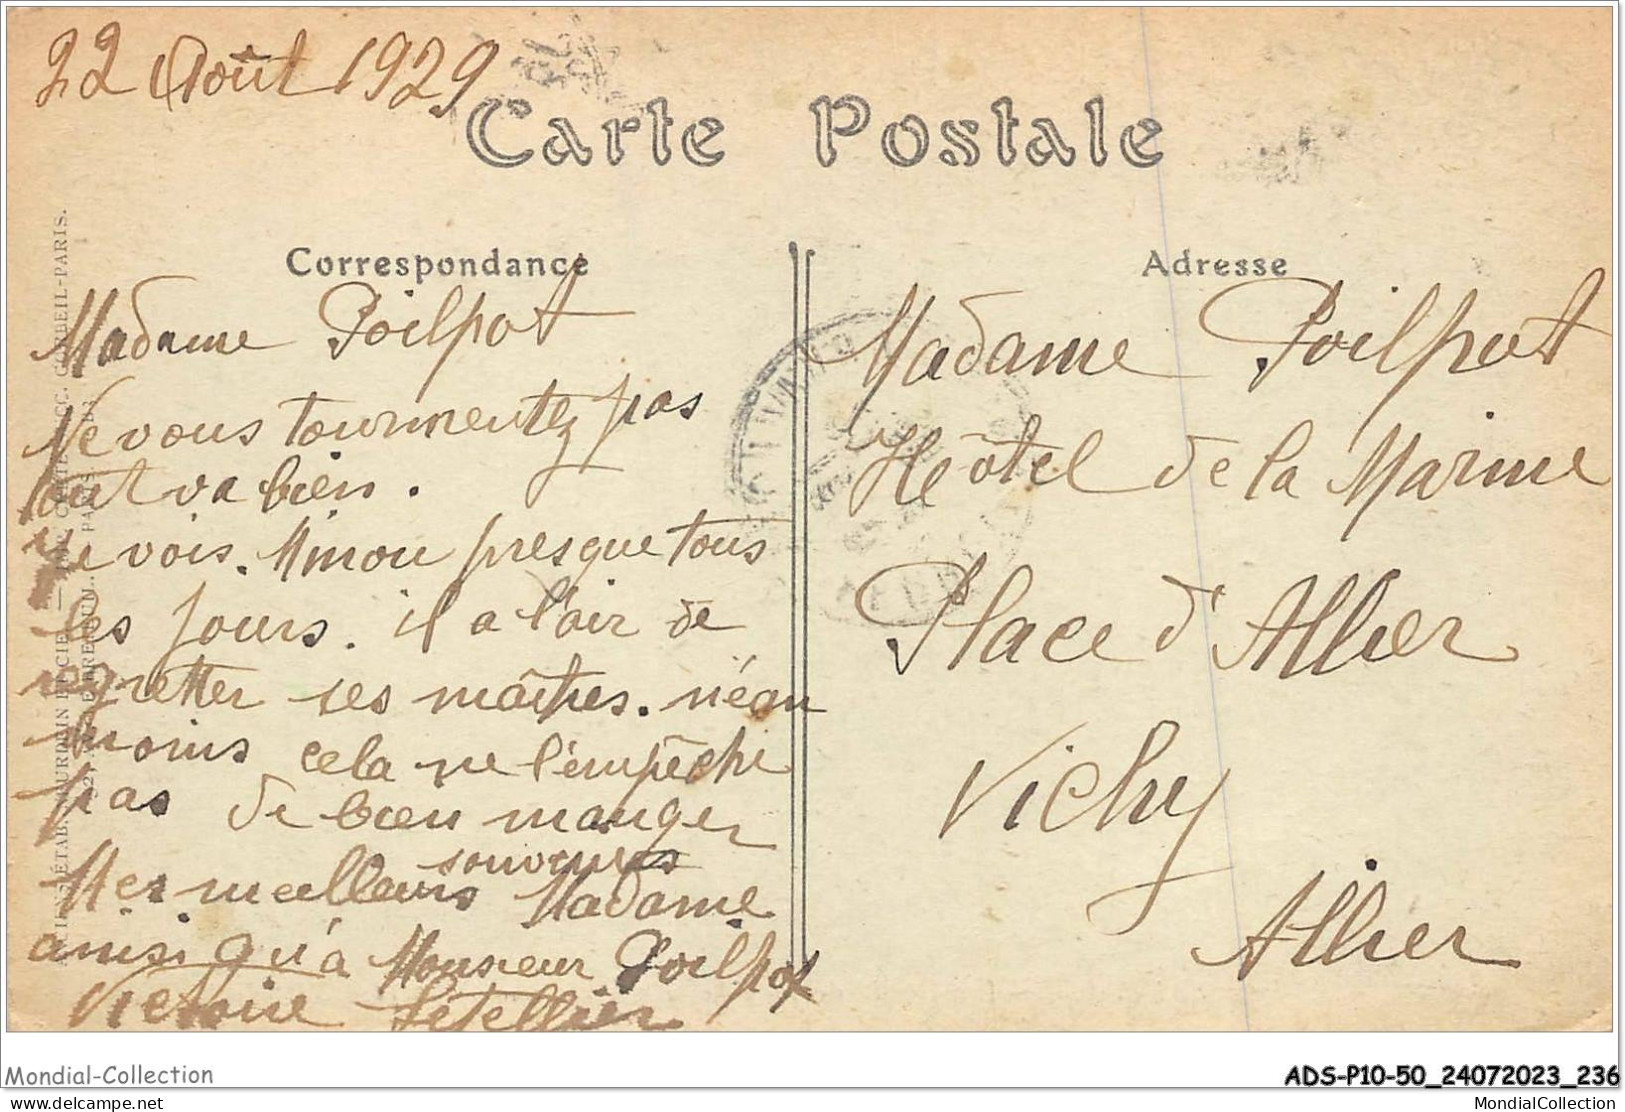 22 Août 1929
Carte Postale
Correspondance
Madame Poilpot
Ne vous tourmentez pas
tout va bien.
Je vois. Minou presque tous
les jours. il a l'air de
regretter ses maîtres. néan
moins cela ne l'empêche
pas de bien manger
souvenirs
Mes meilleurs Madame
ainsi qu'à Monsieur Poilpot
Victoire Letellier
Adresse
Madame Poilpot
Hôtel de la Marine
Place d'Allier
Vichy
Allier
Mondial-Collection
ADS-P10-50_24072023_236
delcampe.net
MondialCollection